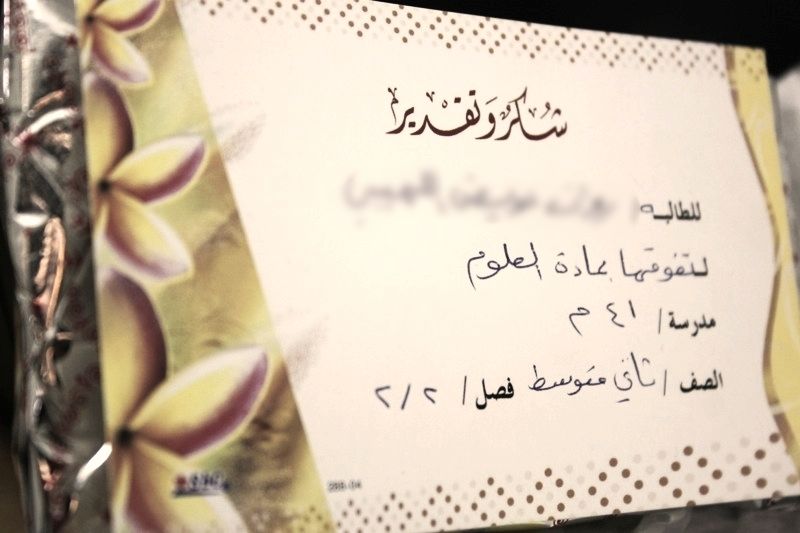 شكر وتقدير
للطالبة /
لتفوقها بمادة العلوم
مدرسة / ٤١ م
الصف / ثاني متوسط فصل / ٢/٢